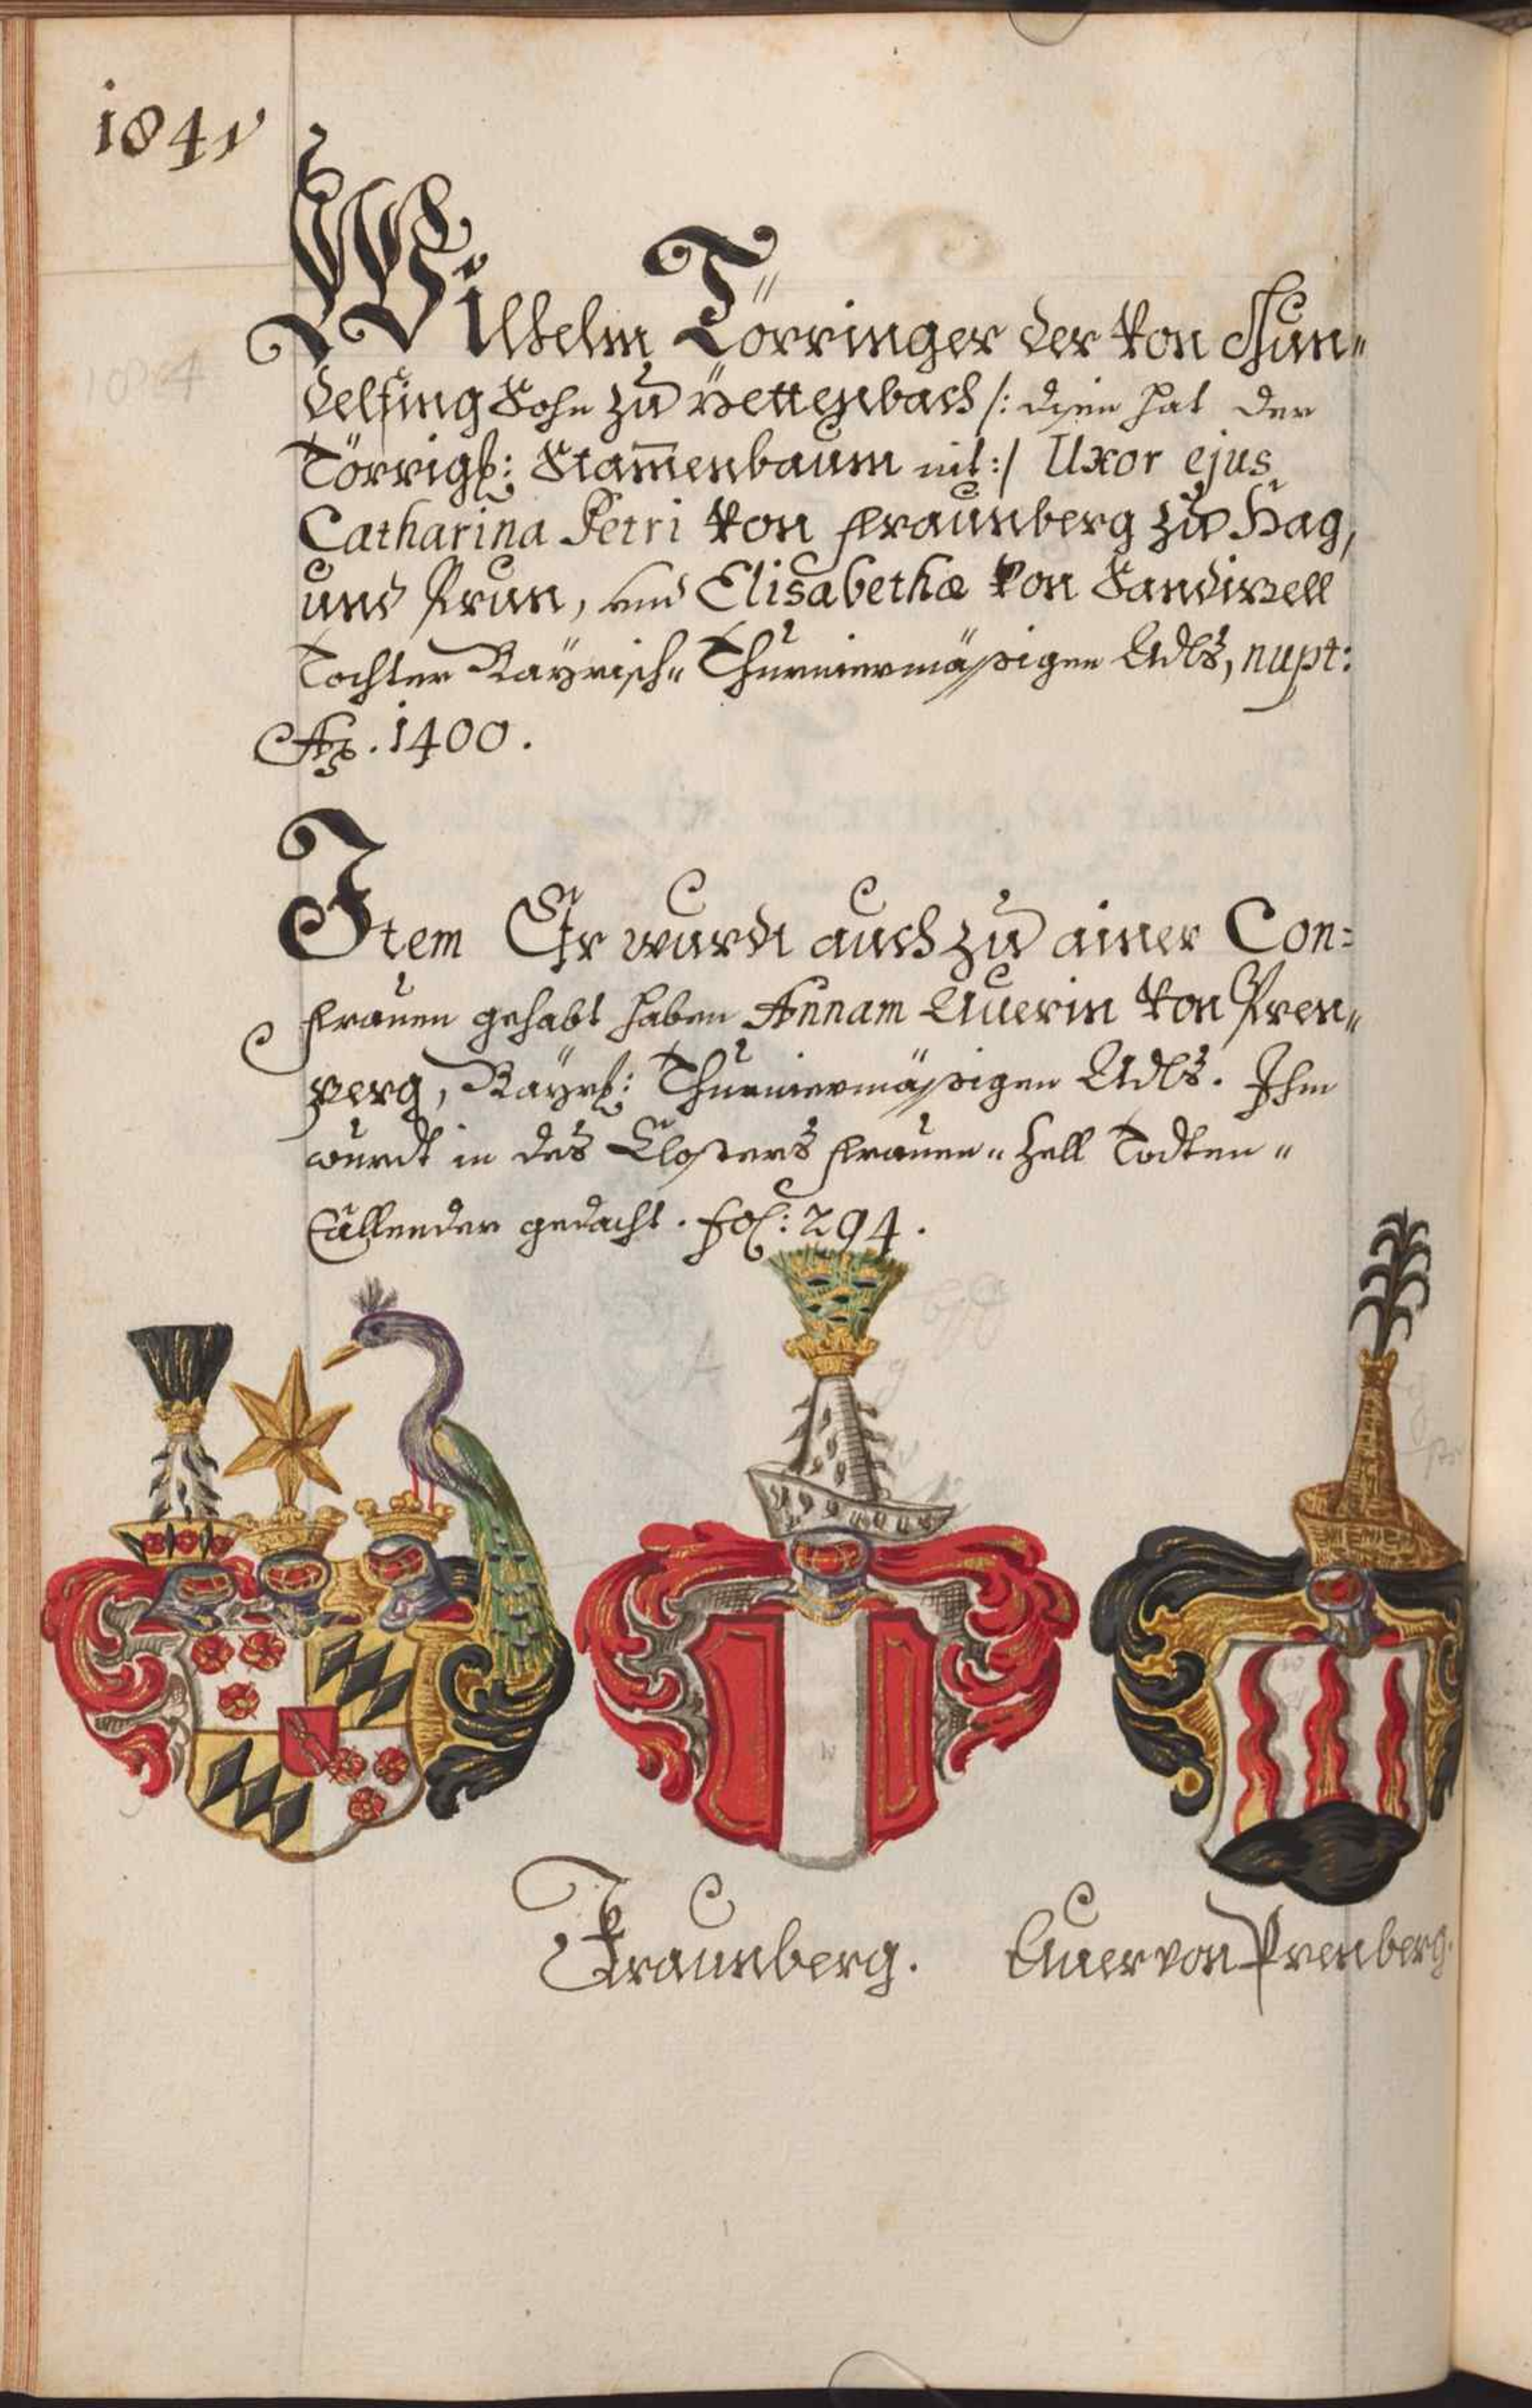 1841
Wilhelm Törringer der von Gun„
delfing Sohn zu Pettenbach /: disen hat der
Törrigs: Stam̄enbaum nit :/ Uxor ejus
Catharina Petri von fraunberg zu Hag,
und Prun, und Elisabethæ von Sandizell
Tochter Bayrisch„ Thurniermässigen Adls, nupt:
Aõ. 1400.
Item Er wurdt auch zu ainer Con=
frauen gehabt haben Annam Auerin von Pren„
perg, Bayrs: Thurniermässigen Adls. Ihm
wurdt in des Closters frauen„ Zell Todten„
Callender gedacht. fol: 294.
Fraunberg. Auer von Prenberg.